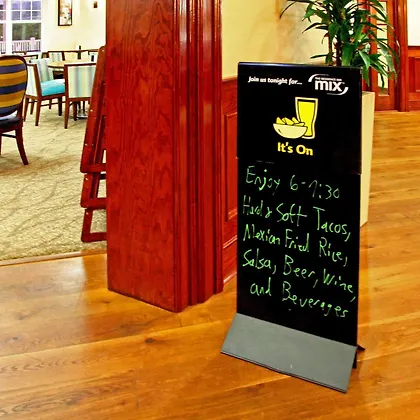 Join us tonight for...
THE RESIDENCE INN
mix
It's On
Enjoy 6-7:30
Hard & Soft Tacos,
Mexian Fried Rice,
Salsa, Beer, Wine,
and Beverages